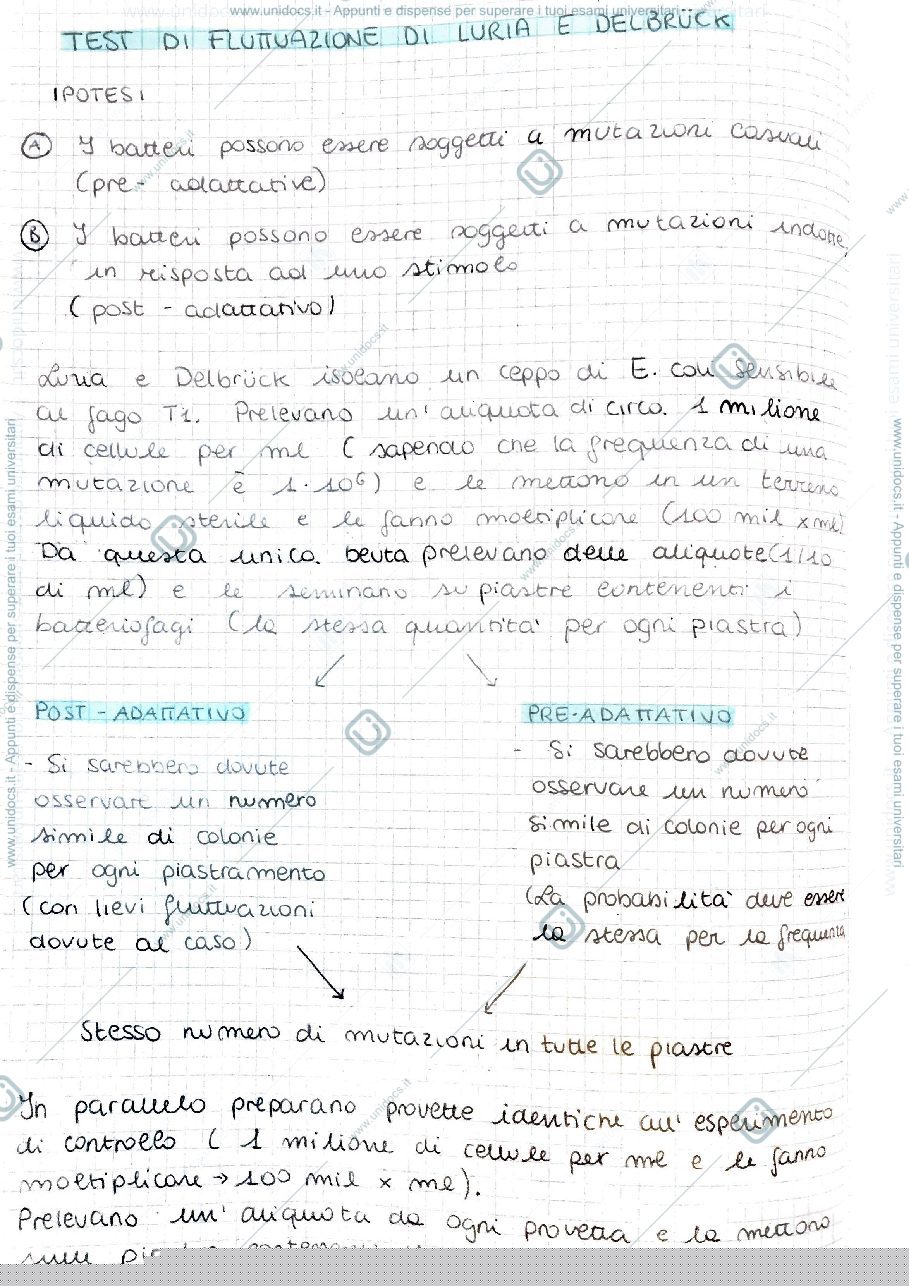 www.unidocs.it - Appunti e dispense per superare i tuoi esami universitari
TEST DI FLUTTUAZIONE DI LURIA E DELBRÜCK
IPOTESI
A I batteri possono essere soggetti a mutazioni casuali
(pre - adattative)
B I batteri possono essere soggetti a mutazioni indotte,
in risposta ad uno stimolo
(post - adattativo)
Luria e Delbrück isolano un ceppo di E. coli sensibile
al fago T1. Prelevano un'aliquota di circa 1 milione
di cellule per ml (sapendo che la frequenza di una
mutazione è 1·10⁶) e le mettono in un terreno
liquido sterile e le fanno moltiplicare (100 mil x ml)
Da questa unica beuta prelevano delle aliquote (1/10
di ml) e le seminano su piastre contenenti i
batteriofagi (la stessa quantità per ogni piastra)
POST - ADATTATIVO
- Si sarebbero dovute
osservare un numero
simile di colonie
per ogni piastramento
(con lievi fluttuazioni
dovute al caso)
PRE-ADATTATIVO
- Si sarebbero dovute
osservare un numero
simile di colonie per ogni
piastra
(La probabilità deve essere
la stessa per la frequenza
Stesso numero di mutazioni in tutte le piastre
In parallelo preparano provette identiche all'esperimento
di controllo (1 milione di cellule per ml e le fanno
moltiplicare → 100 mil x ml).
Prelevano un'aliquota da ogni provetta e la mettono
www.unidocs.it - Appunti e dispense per superare i tuoi esami universitari
www.unidocs.it - Appunti e dispense per superare i tuoi esami universitari